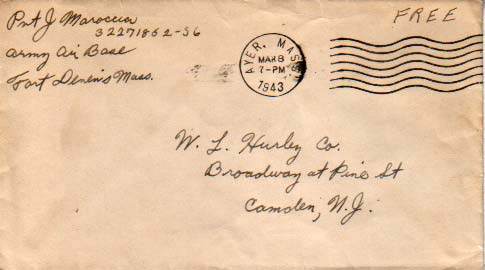 Pvt J Maroccia
32271852-56
Army Air Base
Fort Devens Mass.
FREE
AYER, MASS.
MAR 8
7-PM
1943
W. L. Hurley Co.
Broadway at Pine St
Camden, N.J.